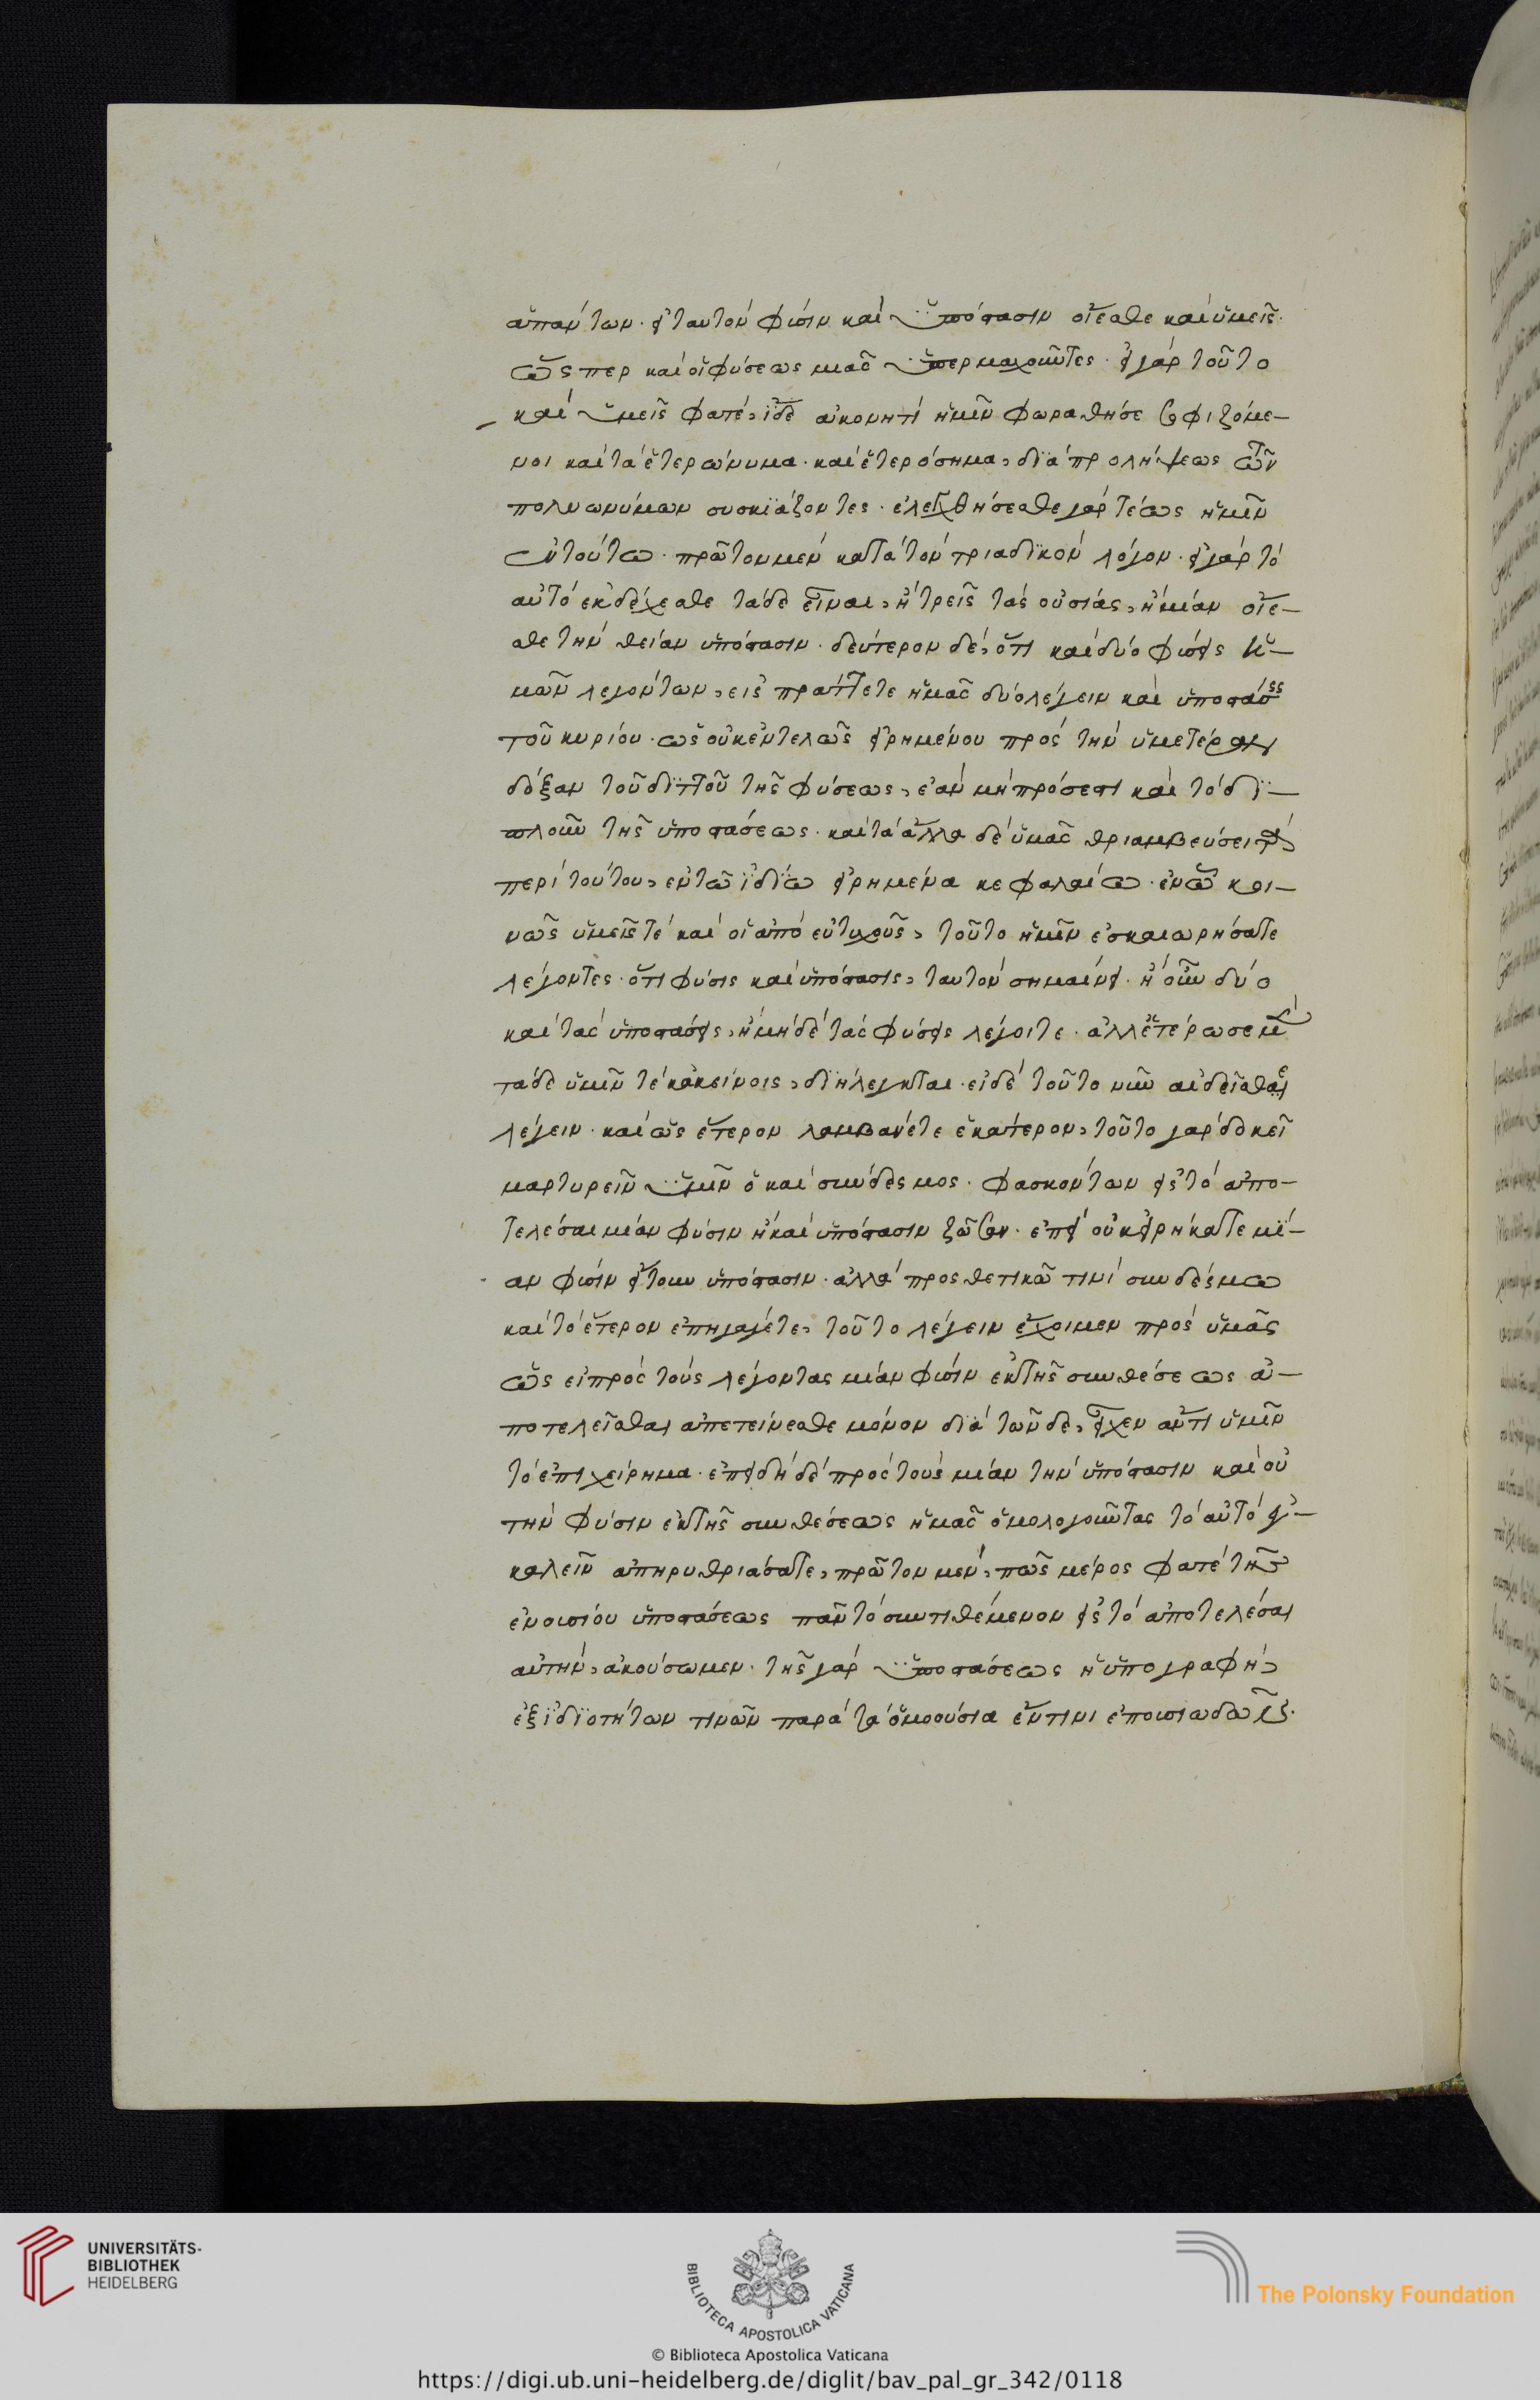 ἁπάντων. εἰ ταυτὸν φύσιν καὶ ὑπόστασιν οἴεσθε καὶ ὑμεῖς.
ὥσπερ καὶ οἱ φύσεως μιᾶς ὑπερμαχοῦντες. εἰ γὰρ τοῦτο
καὶ ὑμεῖς φατέ, ἰδὲ ἀκονητὶ ἡμῖν φωραθῆσε σοφιζόμε-
νοι καὶ τὰ ἑτερώνυμα. καὶ ἑτερόσημα, διὰ προλήψεως τῶν
πολυωνύμων συσκιάζοντες. ἐλεγχθήσεσθε γάρ τέως ἡμῖν
ἐν τούτω. πρῶτον μὲν κατὰ τὸν τριαδικὸν λόγον. εἰ γὰρ τὸ
αὐτὸ ἐκδέχεσθε τάδε εἶναι, ἢ τρεῖς τὰς οὐσίας, ἢ μίαν οἴε-
σθε τὴν θείαν ὑπόστασιν. δεύτερον δέ, ὅτι καὶ δύο φύσεις ἡ-
μῶν λεγόντων, εἰσπράττετε ἡμᾶς δύο λέγειν καὶ ὑποστάσεις
τοῦ κυρίου. ὡς οὐκ ἐντελῶς εἰρημένου πρὸς τὴν ὑμετέραν
δόξαν τοῦ διττοῦ τῆς φύσεως, ἐὰν μὴ πρόσεστι καὶ τὸ δι-
πλοῦν τῆς ὑποστάσεως. καὶ τὰ ἄλλα δὲ ὑμᾶς θριαμβεύσει τὰ
περὶ τούτου, ἐν τῶ ἰδίω εἰρημένα κεφαλαίω. ἐν ὧ κοι-
νῶς ὑμεῖς τὲ καὶ οἱ ἀπὸ εὐτυχοῦς, τοῦτο ἡμῖν ἐσκαιωρήσατε
λέγοντες. ὅτι φύσις καὶ ὑπόστασις, ταυτὸν σημαίνει. ἢ οὖν δύο
καὶ τὰς ὑποστάσεις, ἢ μηδὲ τὰς φύσεις λέγοιτε. ἀλλ' ἑτέρωσε μὲν
τάδε ὑμῖν τὲ κἀκείνοις, διήλεγκται. εἰ δὲ τοῦτο νῦν αἰδεῖσθαι
λέγειν. καὶ ὡς ἕτερον λαμβάνετε ἑκάτερον, τοῦτο γὰρ δοκεῖ
μαρτυρεῖν ὑμῖν ὁ καὶ σύνδεσμος. φασκόντων εἰς τὸ ἀπο-
τελέσαι μίαν φύσιν ἢ καὶ ὑπόστασιν ζῶσαν. ἐπεὶ οὐκ εἰρήκατε μί-
αν φύσιν εἴτουν ὑπόστασιν. ἀλλὰ προσθετικῶ τινὶ συνδέσμω
καὶ τὸ ἕτερον ἐπηγάγετε, τοῦτο λέγειν ἔχοιμεν πρὸς ὑμᾶς
ὡς εἰ πρὸς τοὺς λέγοντας μίαν φύσιν ἐκ τῆς συνθέσεως ἀ-
ποτελεῖσθαι ἀπετείνεσθε μόνον διὰ τῶνδε, εἶχεν ἄν τι ὑμῖν
τὸ ἐπιχείρημα. ἐπειδὴ δὲ πρὸς τοὺς μίαν τὴν ὑπόστασιν καὶ οὐ
τὴν φύσιν ἐκ τῆς συνθέσεως ἡμᾶς ὁμολογοῦντας τὸ αὐτὸ ἐγ-
καλεῖν ἀπηρυθριάσατε, πρῶτον μὲν, πῶς μέρος φατὲ τῆς
ἐνουσίου ὑποστάσεως πᾶν τὸ συντιθέμενον εἰς τὸ ἀποτελέσαι
αὐτὴν, ἀκούσωμεν. τῆς γὰρ ὑποστάσεως ἡ ὑπογραφὴ,
ἐξ ἰδιοτήτων τινῶν παρὰ τὰ ὁμοούσια ἔν τινι ἐπουσιωδῶς.
UNIVERSITÄTS-
BIBLIOTHEK
HEIDELBERG
BIBLIOTECA APOSTOLICA VATICANA
The Polonsky Foundation
© Biblioteca Apostolica Vaticana
https://digi.ub.uni-heidelberg.de/diglit/bav_pal_gr_342/0118